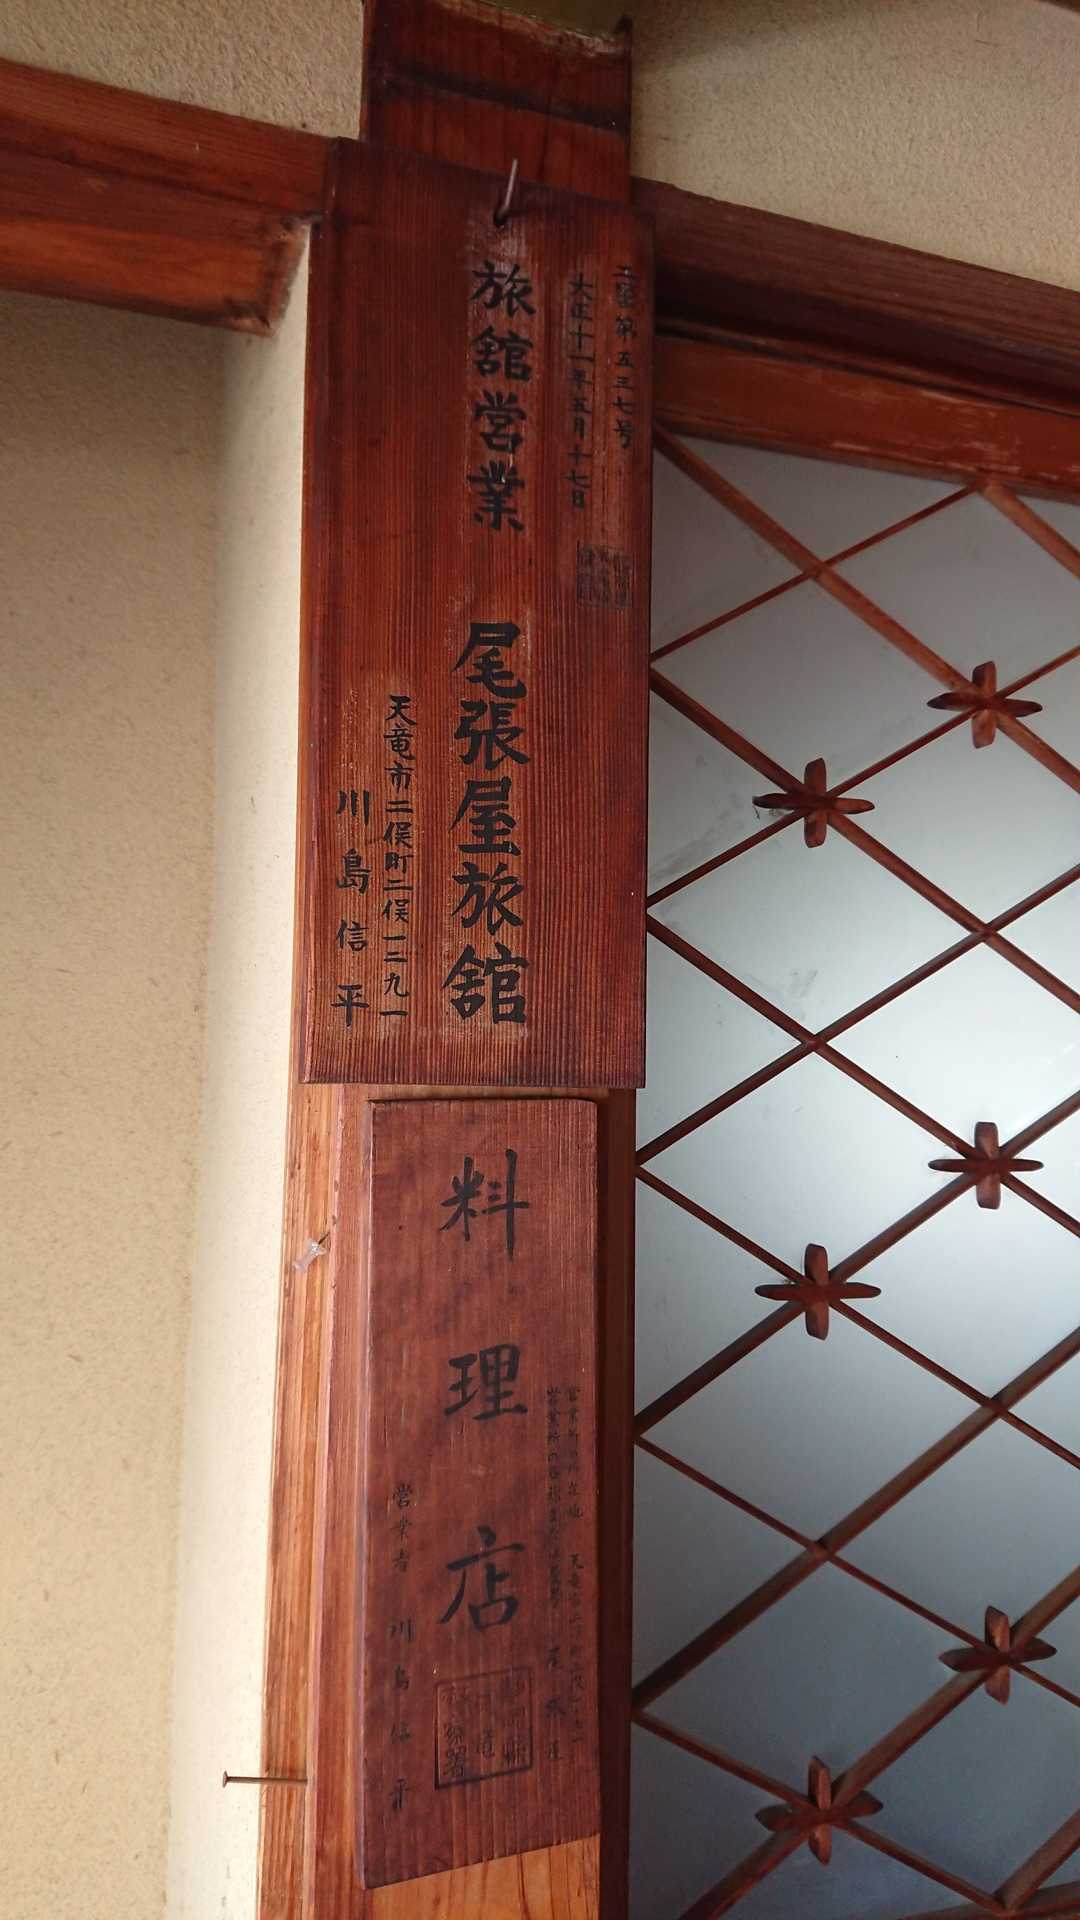 第五三七号
大正十一年五月十七日
旅館営業 尾張屋旅館
天竜市二俣町二俣一二九一
川島信平
営業所の所在地 天竜市二俣町二俣
営業所の名称又は屋号 尾張屋
料理店
営業者 川島信平
警察署